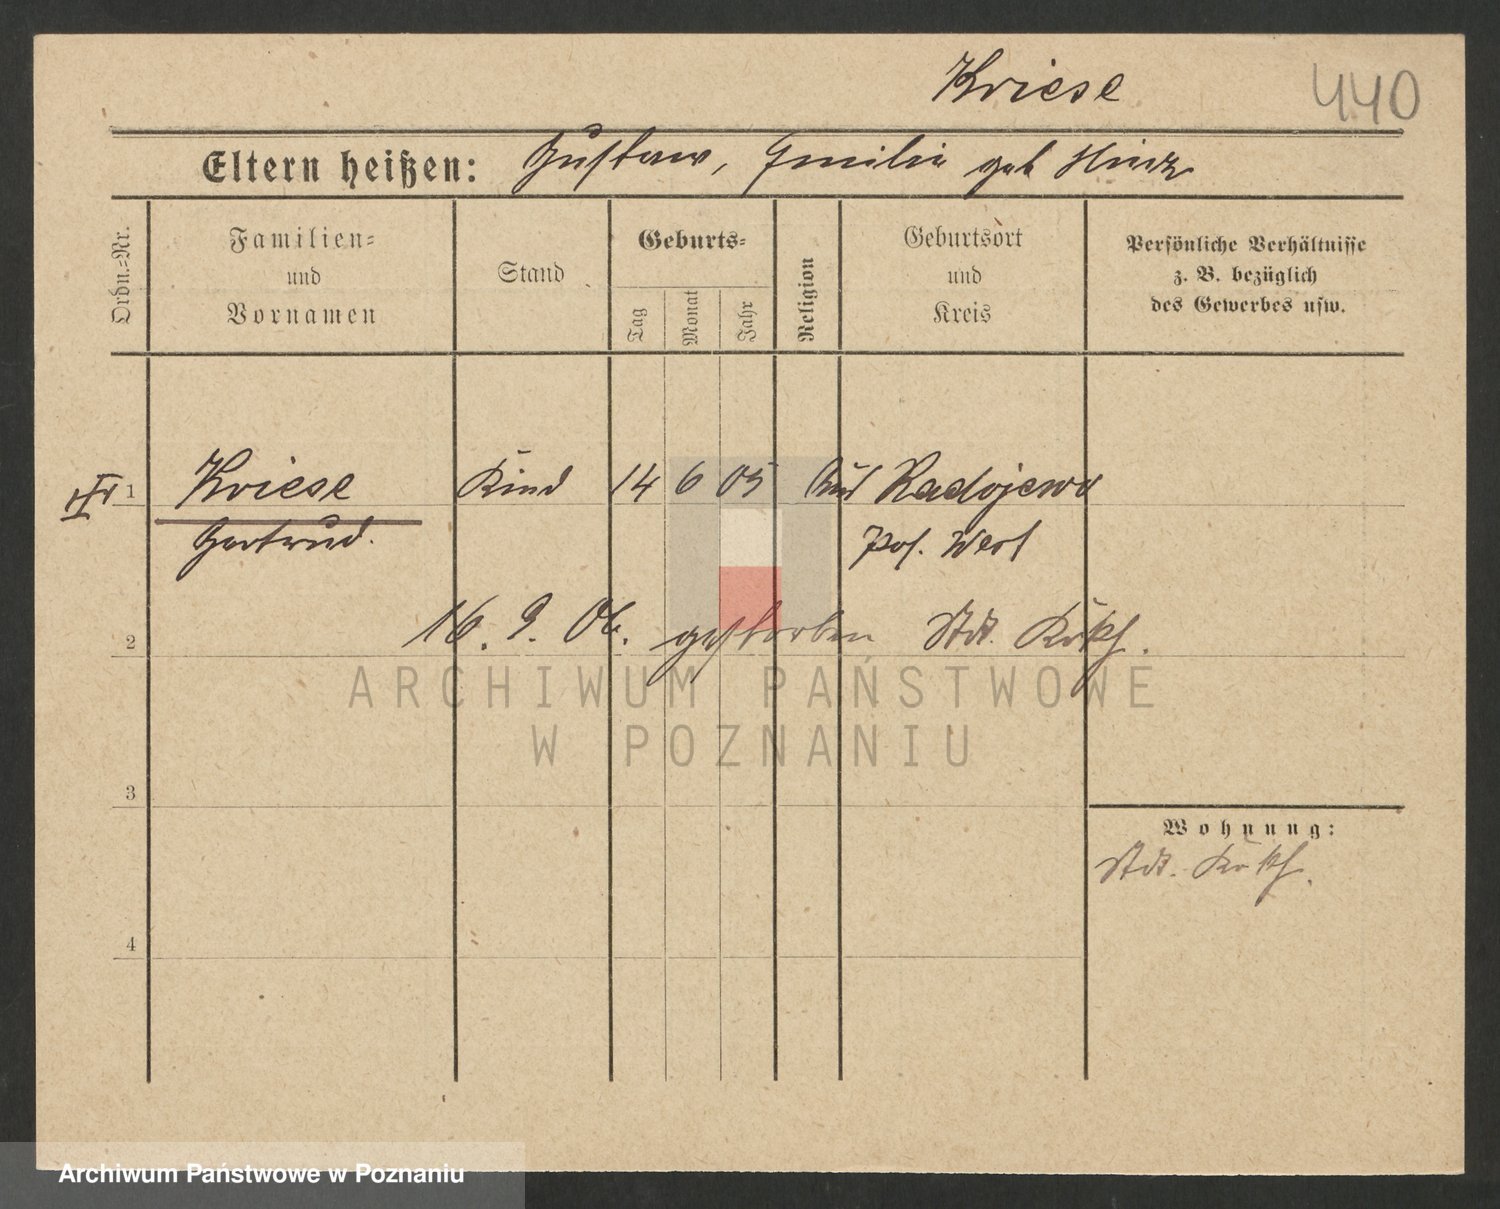 Kriese 440
Eltern heißen: Gustaw, Emilie geb Hinz
Ordn.=Nr.
Familien=
und
Vornamen
Stand
Geburts=
Tag
Monat
Jahr
Religion
Geburtsort
und
Kreis
Persönliche Verhältnisse
z. B. bezüglich
des Gewerbes usw.
III 1 Kriese Kind 14 6 05 Radojewo
Gertrud. Pos. West
16. 9. 06. gestorben
2
ARCHIWUM PAŃSTWOWE
W POZNANIU
3
Wohnung:
4
Archiwum Państwowe w Poznaniu